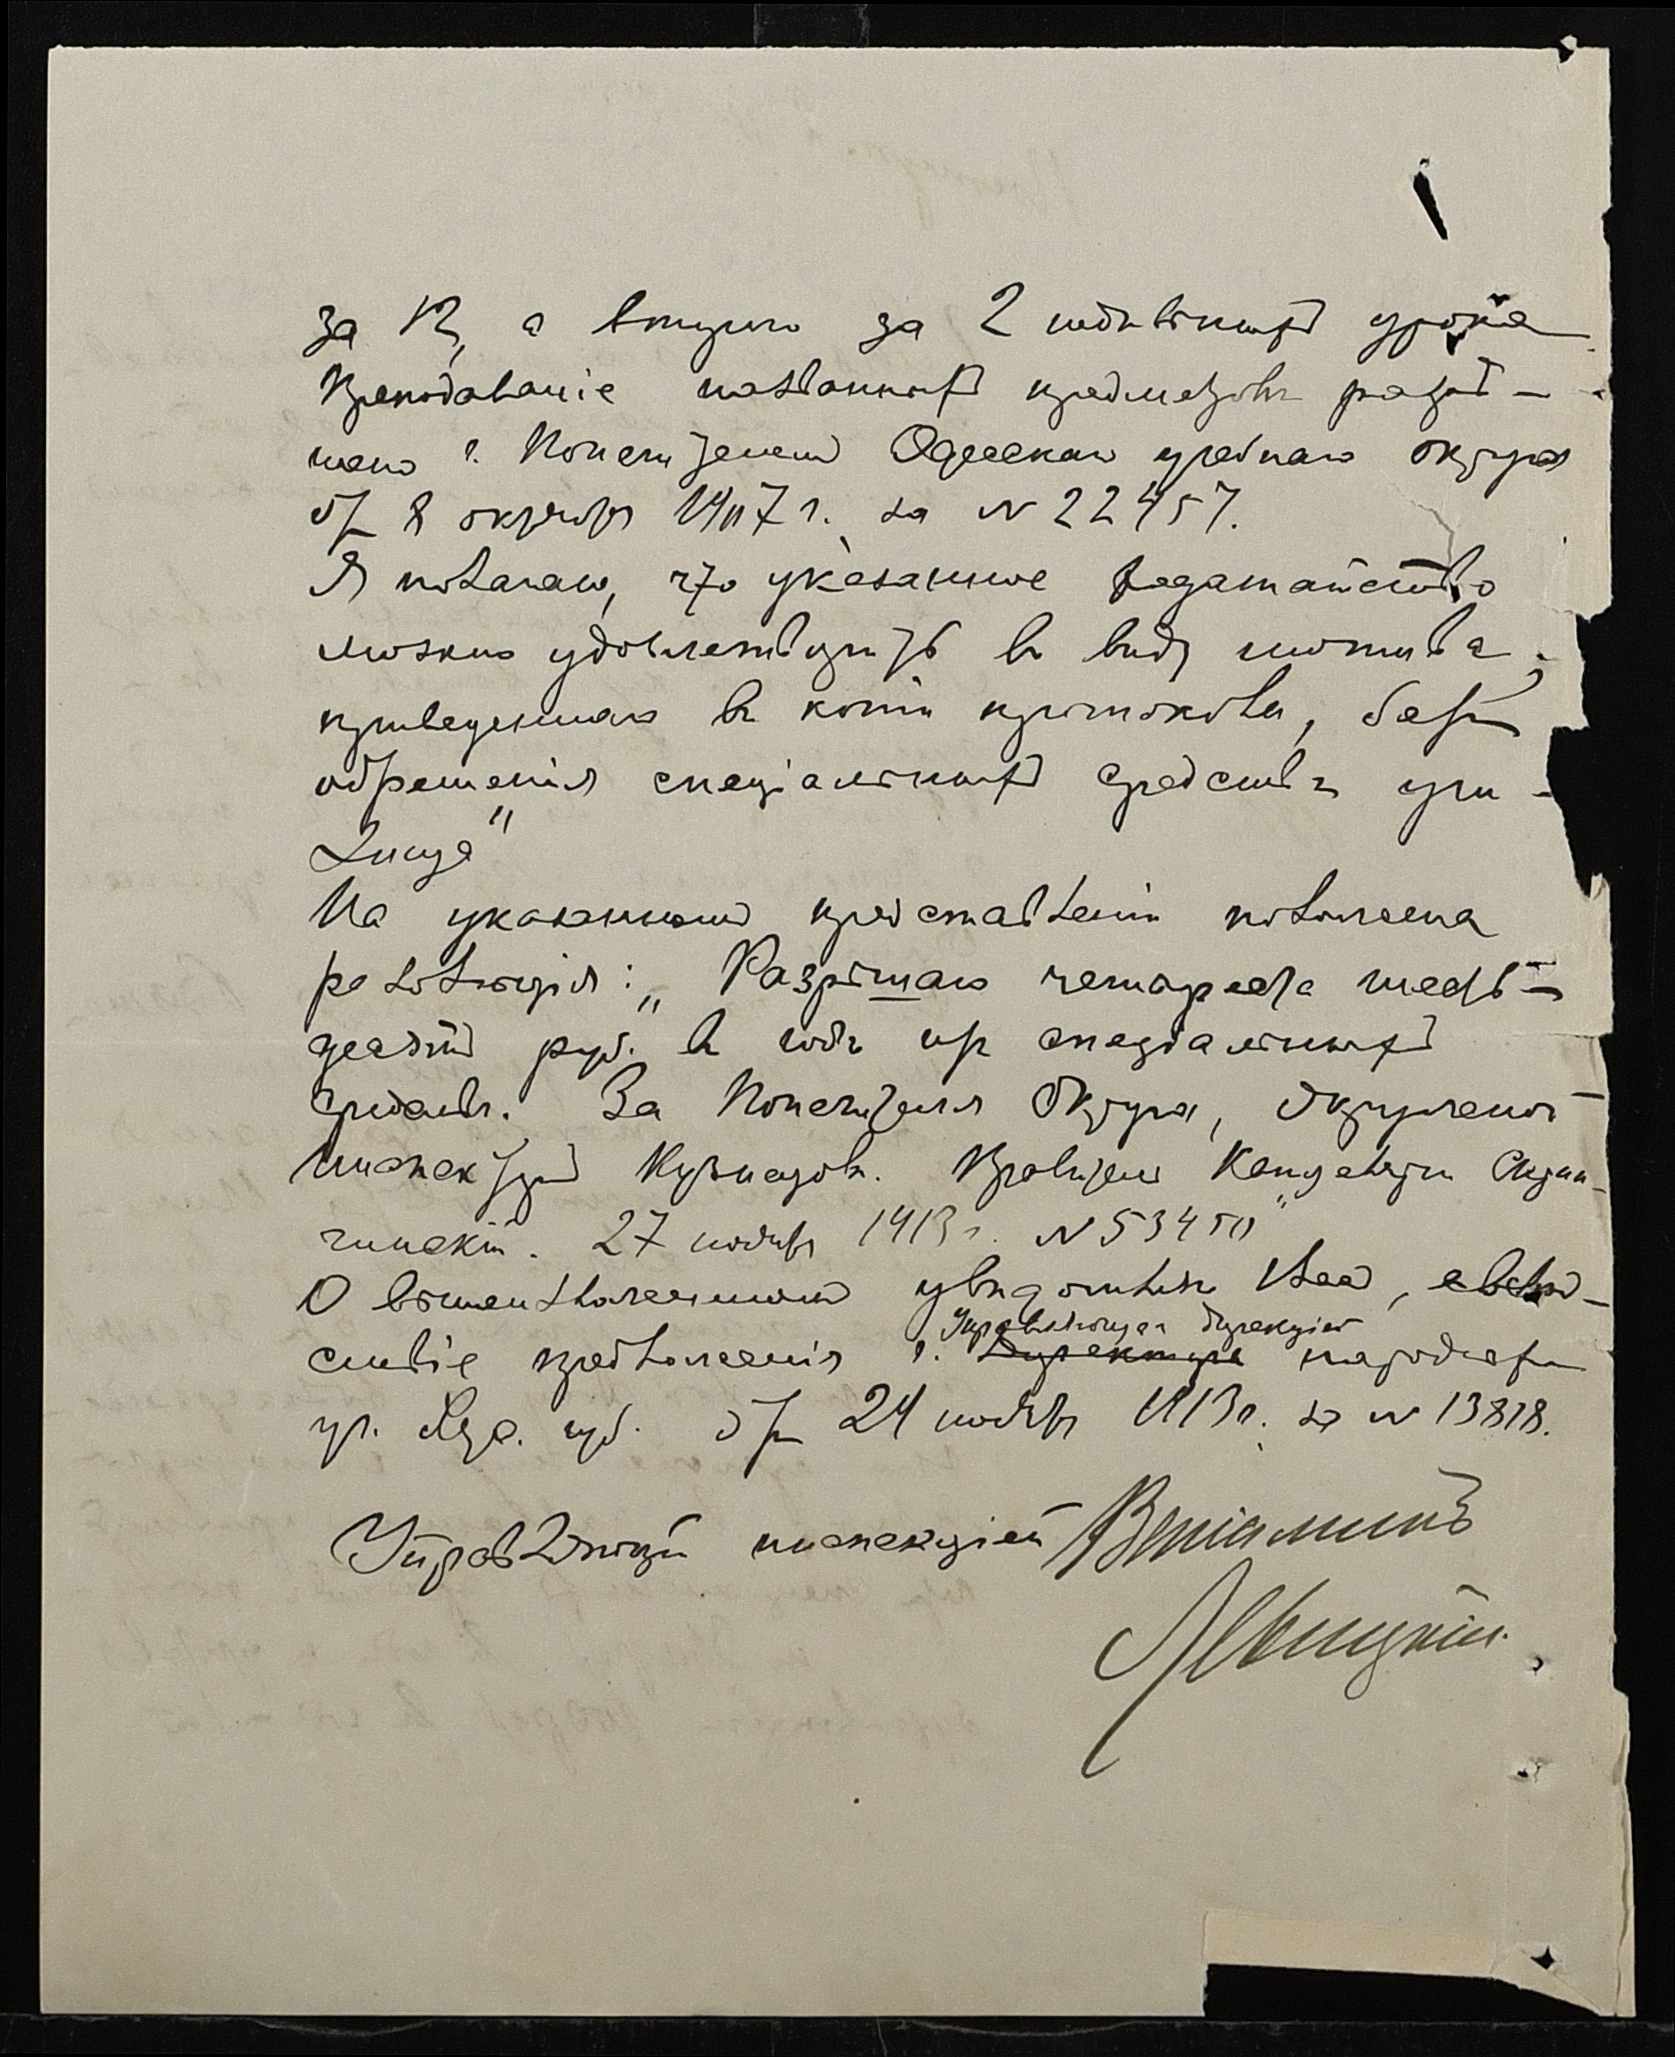 за 12, а второго за 2 недѣльныхъ урока
Преподаваніе названныхъ предметовъ разрѣ-
шено г. Попечителемъ Одесскаго учебнаго округа
отъ 8 октября 1907 г. за № 22457.
Я полагаю, что указанное ходатайство
можно удовлетворить въ виду мотива,
приведеннаго въ копіи протокола, безъ
обремененія спеціальныхъ средствъ учи-
лища"
На указанномъ представленіи положена
резолюція: „Разрѣшаю четыреста шесть-
десятъ руб. въ годъ изъ спеціальныхъ
средствъ. За Попечителя Округа, Окружной
Инспекторъ Кузнецовъ. Правитель Канцеляріи
27 ноября 1913 г. № 53450"
О вышеизложенномъ увѣдомляю Васъ,
ствіе предложенія г. Управляющаго Дирекціей народныхъ
уч. губ. отъ 24 ноября 1913 г. за № 13818.
Управляющій инспекціей Веніаминъ
Левицкій.